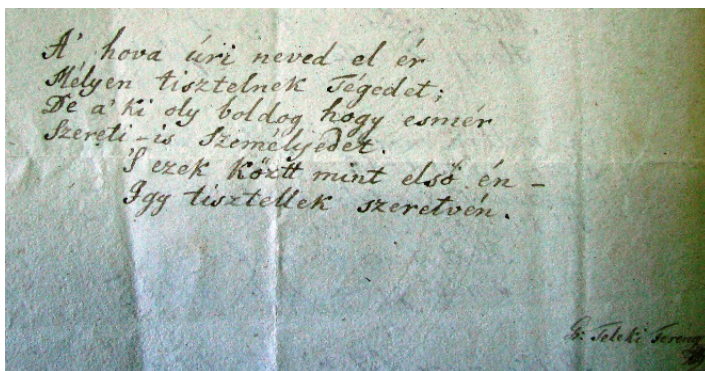 A' hova úri neved el ér
Mélyen tisztelnek Tégedet;
De a' ki oly boldog hogy esmér
Szereti-is Személyjedet.
'S ezek köztt mint első én –
Igy tisztellek szeretvén.
G: Teleki Ferenc